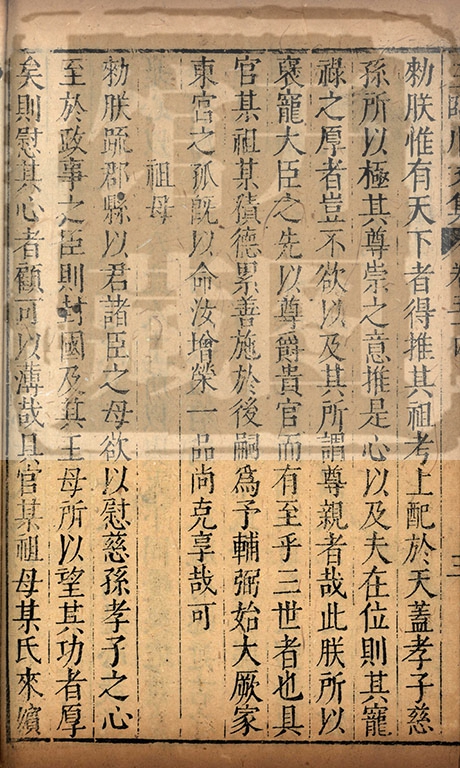 勑朕惟有天下者得推其祖考上配於天蓋孝子慈
孫所以極其尊崇之意推是心以及夫在位則其寵
祿之厚者豈不欲以及其所謂尊親者哉此朕所以
襃寵大臣之先以尊爵貴官而有至乎三世者也具
官某祖某積德累善施於後嗣爲予輔弼始大厥家
東宮之孤旣以命汝增榮一品尚克享哉可
祖母
勑朕䟽郡縣以君諸臣之母欲以慰慈孫孝子之心
至於政事之臣則封國及其王母所以望其功者厚
矣則慰其心者顧可以薄哉具官某祖母某氏來嬪